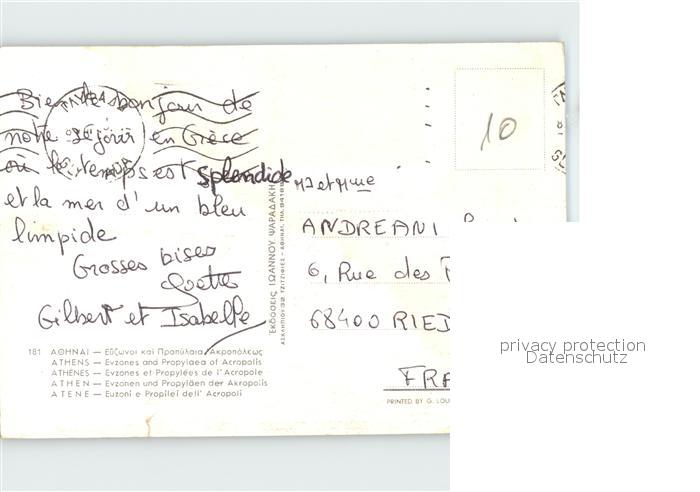 Bien le bonjour de
notre séjour en Grèce
où le temps est splendide
et la mer d'un bleu
limpide
Grosses bises
Gilbert et Isabelle
181 ΑΘΗΝΑΙ — Εὔζωνοι καὶ Προπύλαια Ἀκροπόλεως
ATHENS — Evzones and Propylaea of Acropolis
ATHÈNES — Evzones et Propylées de l'Acropole
ATHEN — Evzonen und Propyläen der Akropolis
ATENE — Euzoni e Propilei dell' Acropoli
Ἐκδόσεις ΙΩΑΝΝΟΥ ΨΑΡΑΔΑΚΗ
ΑΣΚΛΗΠΙΟΥ 32 ΤΖΙΤΖΙΦΙΕΣ - ΑΘΗΝΑΙ, ΤΗΛ.
10
et Mme
ANDREANI
6, Rue des
68400 RIED
FRA
PRINTED BY G. LOU
privacy protection
Datenschutz